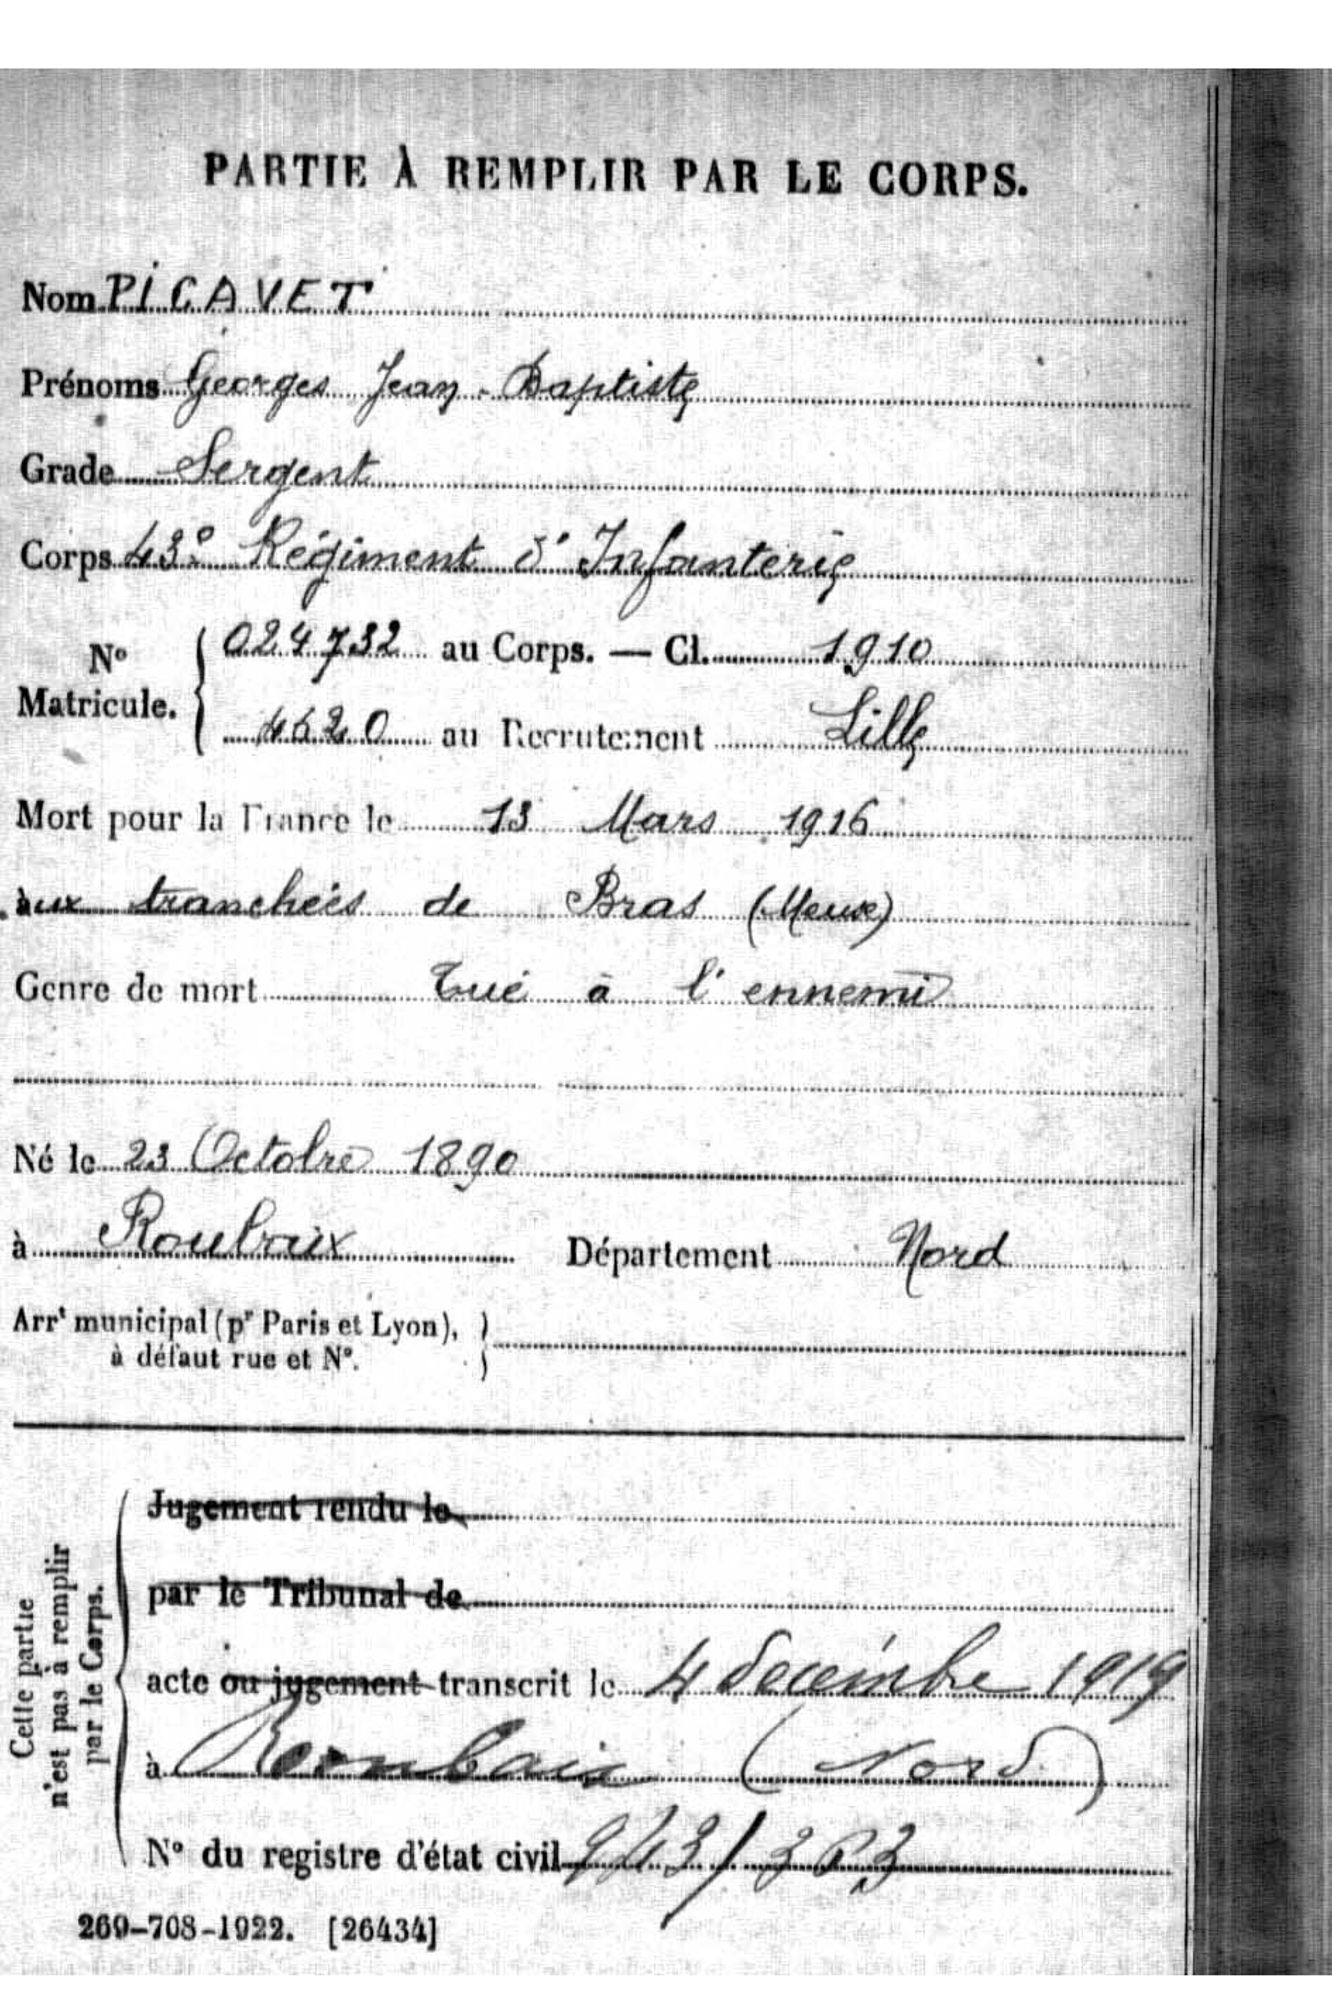 PARTIE À REMPLIR PAR LE CORPS.
Nom PICAVET
Prénoms Georges Jean-Baptiste
Grade Sergent
Corps 43e Régiment d'Infanterie
No Matricule. { 024732 au Corps. — Cl. 1910
4620 au Recrutement Lille
Mort pour la France le 13 Mars 1916
aux tranchées de Bras (Meuse)
Genre de mort Tué à l'ennemi
Né le 23 Octobre 1890
à Roubaix Département Nord
Arrt municipal (pr Paris et Lyon), }
à défaut rue et No.
Cette partie n'est pas à remplir par le Corps.
Jugement rendu le
par le Tribunal de
acte ou jugement transcrit le 4 décembre 1919
à Roubaix (Nord)
No du registre d'état civil 943/303
269-708-1922. [26434]